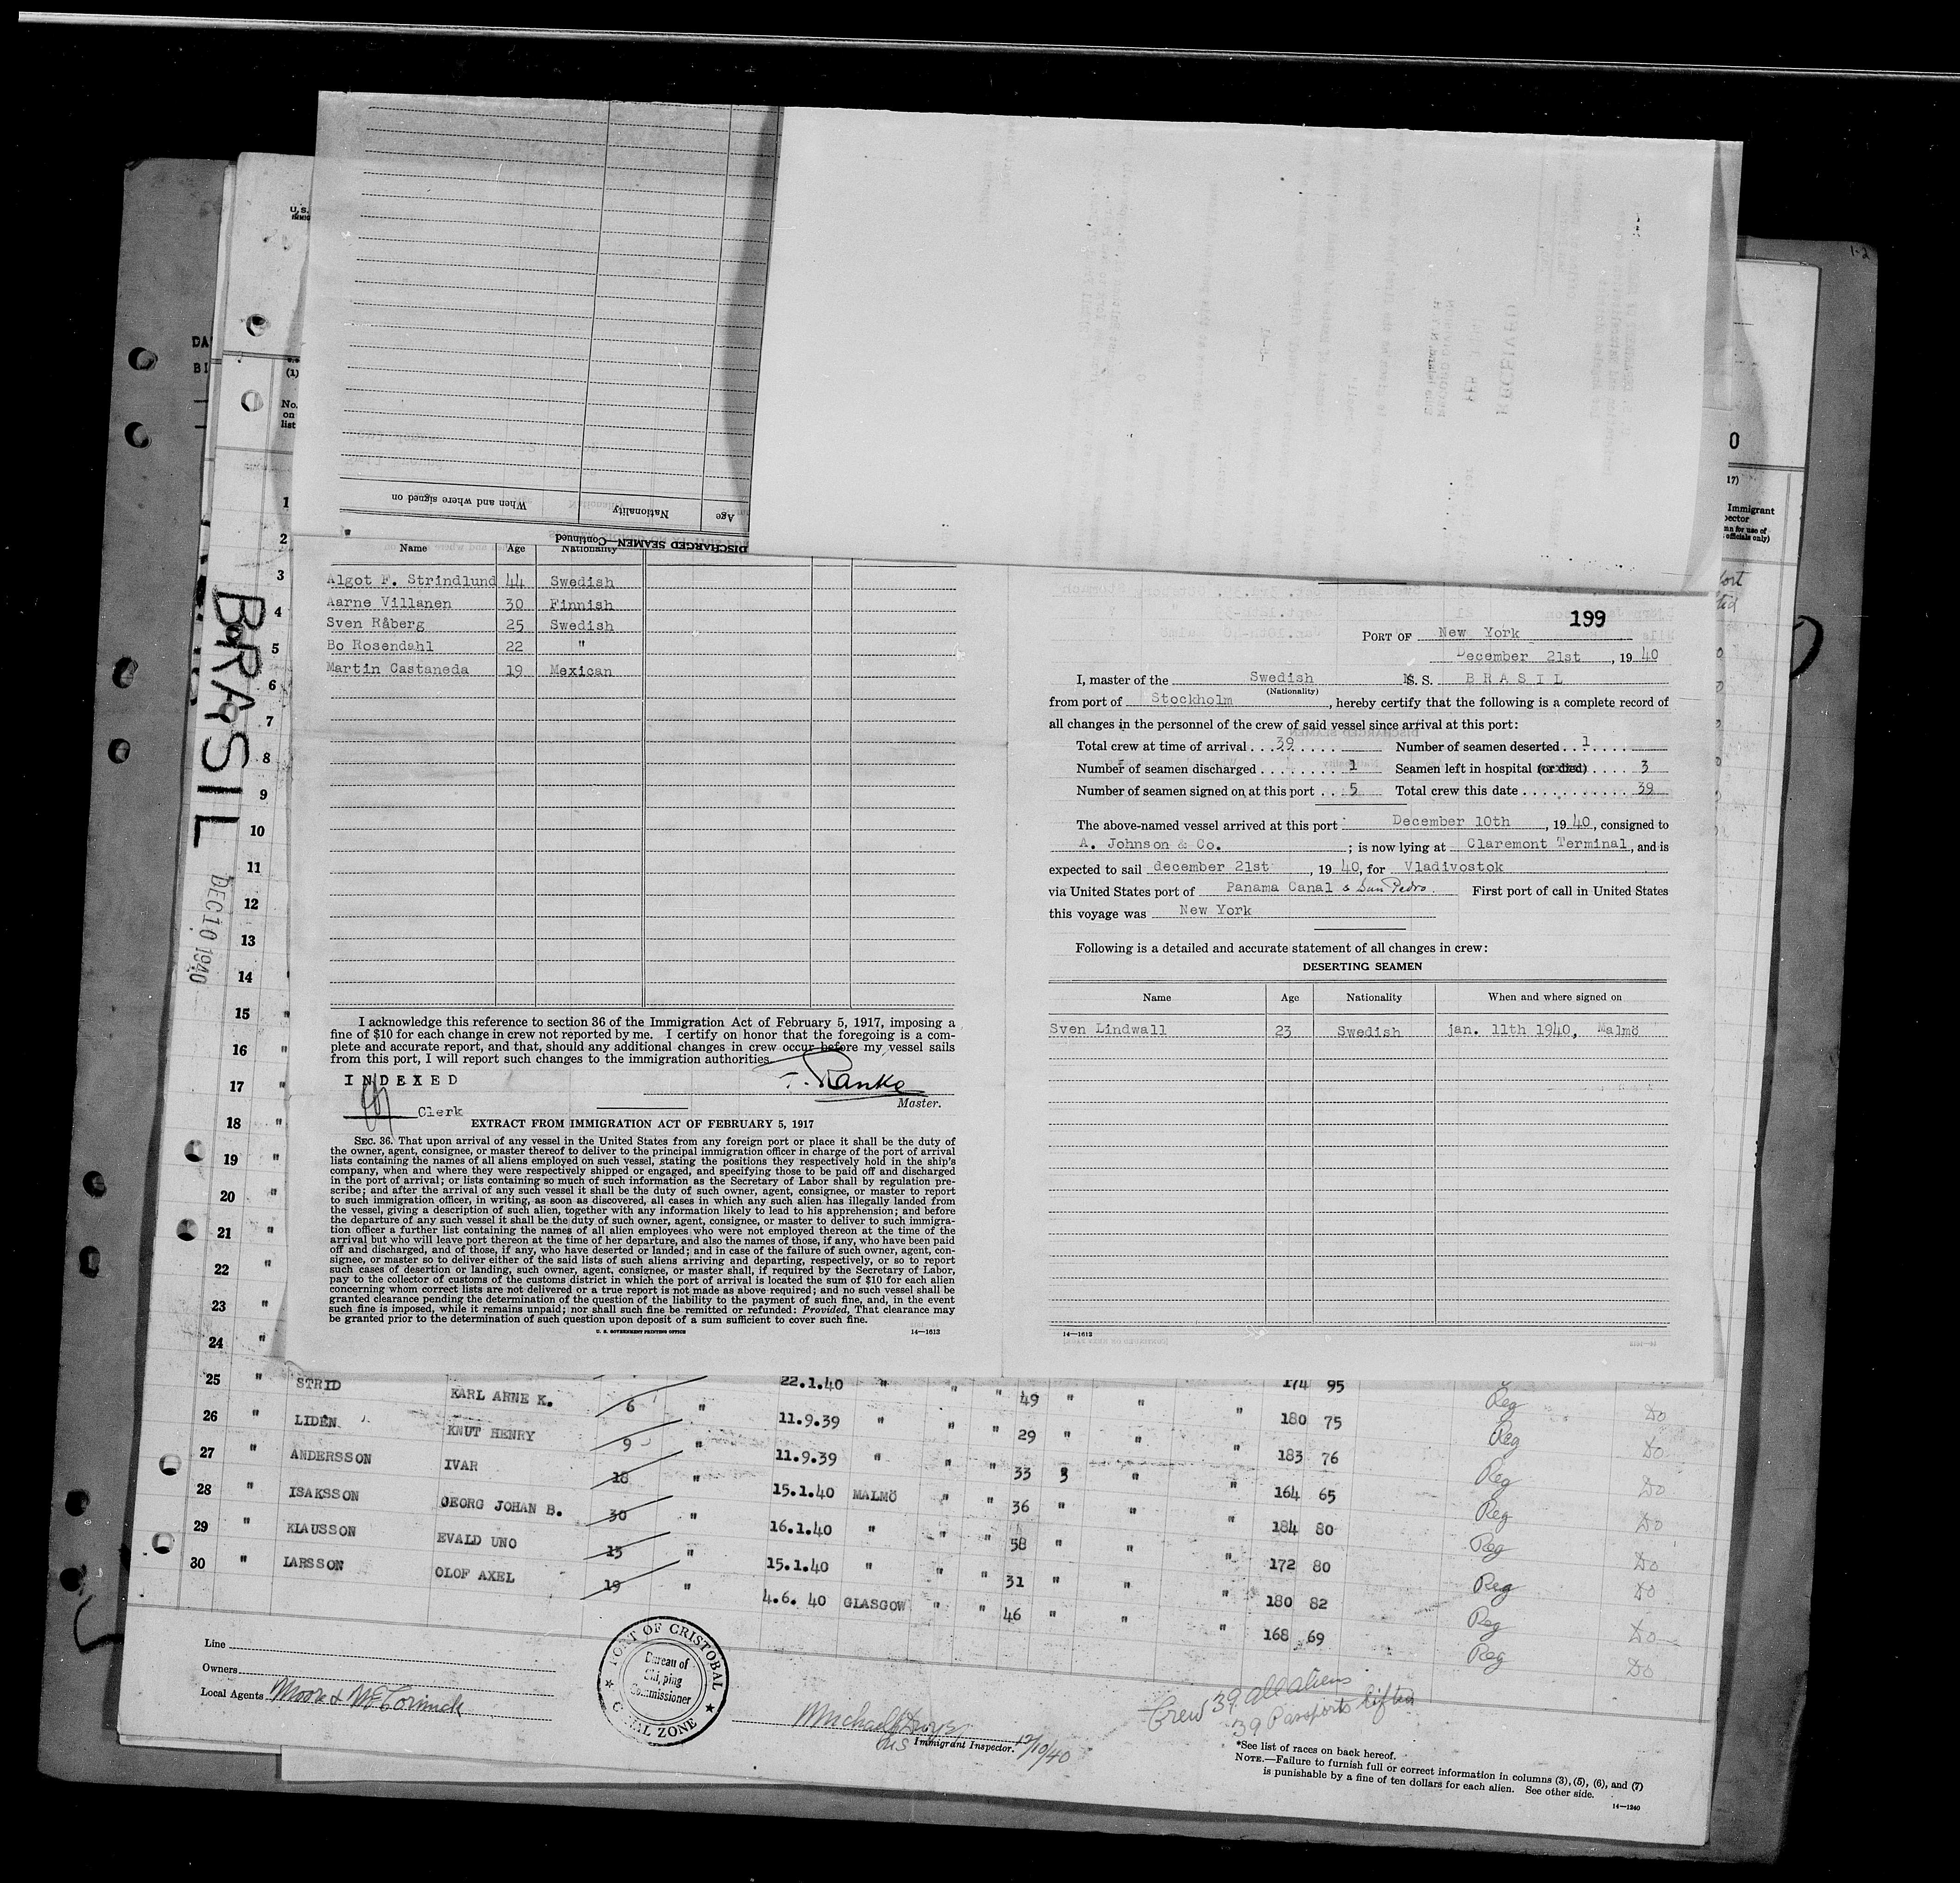 199
PORT OF New York
December 21st, 19 40
I, master of the Swedish M. S. BRASIL
(Nationality)
from port of Stockholm, hereby certify that the following is a complete record of
all changes in the personnel of the crew of said vessel since arrival at this port:
Total crew at time of arrival . . . 39 . . . . . . Number of seamen deserted . . 1 . . . .
Number of seamen discharged . . . . . . . . . 1 Seamen left in hospital (or died) . . . . 3
Number of seamen signed on at this port . . . 5 Total crew this date . . . . . . . . . . . . 39
The above-named vessel arrived at this port December 10th, 19 40, consigned to
A. Johnson & Co. ; is now lying at Claremont Terminal, and is
expected to sail december 21st, 19 40, for Vladivostok
via United States port of Panama Canal & San Pedro. First port of call in United States
this voyage was New York
Following is a detailed and accurate statement of all changes in crew:
DESERTING SEAMEN
Name Age Nationality When and where signed on
Sven Lindwall 23 Swedish jan. 11th 1940, Malmö
14—1613
When and where signed on Nationality Age
DISCHARGED SEAMEN—Continued
Name Age Nationality
Algot F. Strindlund 44 Swedish
Aarne Villanen 30 Finnish
Sven Råberg 25 Swedish
Bo Rosendahl 22 "
Martin Castaneda 19 Mexican
I acknowledge this reference to section 36 of the Immigration Act of February 5, 1917, imposing a
fine of $10 for each change in crew not reported by me. I certify on honor that the foregoing is a com-
plete and accurate report, and that, should any additional changes in crew occur before my vessel sails
from this port, I will report such changes to the immigration authorities.
INDEXED
Clerk
Master.
EXTRACT FROM IMMIGRATION ACT OF FEBRUARY 5, 1917
SEC. 36. That upon arrival of any vessel in the United States from any foreign port or place it shall be the duty of
the owner, agent, consignee, or master thereof to deliver to the principal immigration officer in charge of the port of arrival
lists containing the names of all aliens employed on such vessel, stating the positions they respectively hold in the ship's
company, when and where they were respectively shipped or engaged, and specifying those to be paid off and discharged
in the port of arrival; or lists containing so much of such information as the Secretary of Labor shall by regulation pre-
scribe; and after the arrival of any such vessel it shall be the duty of such owner, agent, consignee, or master to report
to such immigration officer, in writing, as soon as discovered, all cases in which any such alien has illegally landed from
the vessel, giving a description of such alien, together with any information likely to lead to his apprehension; and before
the departure of any such vessel it shall be the duty of such owner, agent, consignee, or master to deliver to such immigra-
tion officer a further list containing the names of all alien employees who were not employed thereon at the time of the
arrival but who will leave port thereon at the time of her departure, and also the names of those, if any, who have been paid
off and discharged, and of those, if any, who have deserted or landed; and in case of the failure of such owner, agent, con-
signee, or master so to deliver either of the said lists of such aliens arriving and departing, respectively, or so to report
such cases of desertion or landing, such owner, agent, consignee, or master shall, if required by the Secretary of Labor,
pay to the collector of customs of the customs district in which the port of arrival is located the sum of $10 for each alien
concerning whom correct lists are not delivered or a true report is not made as above required; and no such vessel shall be
granted clearance pending the determination of the question of the liability to the payment of such fine, and, in the event
such fine is imposed, while it remains unpaid; nor shall such fine be remitted or refunded: Provided, That clearance may
be granted prior to the determination of such question upon deposit of a sum sufficient to cover such fine.
U. S. GOVERNMENT PRINTING OFFICE 14—1613
BRASIL
DEC 10 1940
(1)
No.
on
list
1
2
3
4
5
6
7
8
9
10
11
12
13
14
15 "
16 "
17 "
18 "
19 "
20 "
21 "
22 "
23 "
24 "
22.1.40 " 174 95
25 " STRID KARL ARNE K. 6 " 11.9.39 " " " 49 " " " 180 75 Reg Do
26 " LIDEN KNUT HENRY 9 " 11.9.39 " " " 29 " " " 183 76 Reg Do
27 " ANDERSSON IVAR 18 " 15.1.40 MALMÖ " " 33 3 " " 164 65 Reg Do
28 " ISAKSSON GEORG JOHAN B. 30 " 16.1.40 " " " 36 " " " 184 80 Reg Do
29 " KLAUSSON EVALD UNO 13 " 15.1.40 " " " 58 " " " 172 80 Reg Do
30 " LARSSON OLOF AXEL 19 " 4.6. 40 GLASGOW " " 31 " " " 180 82 Reg Do
46 " " " 168 69 Reg Do
Line
Owners
Local Agents Moore & McCormick
PORT OF CRISTOBAL
Bureau of
Shipping
Commissioner
CANAL ZONE
Immigrant Inspector. 12/10/40
Crew 39 all aliens
39 Passports lifted
*See list of races on back hereof.
NOTE.—Failure to furnish full or correct information in columns (3), (5), (6), and (7)
is punishable by a fine of ten dollars for each alien. See other side.
14—1240